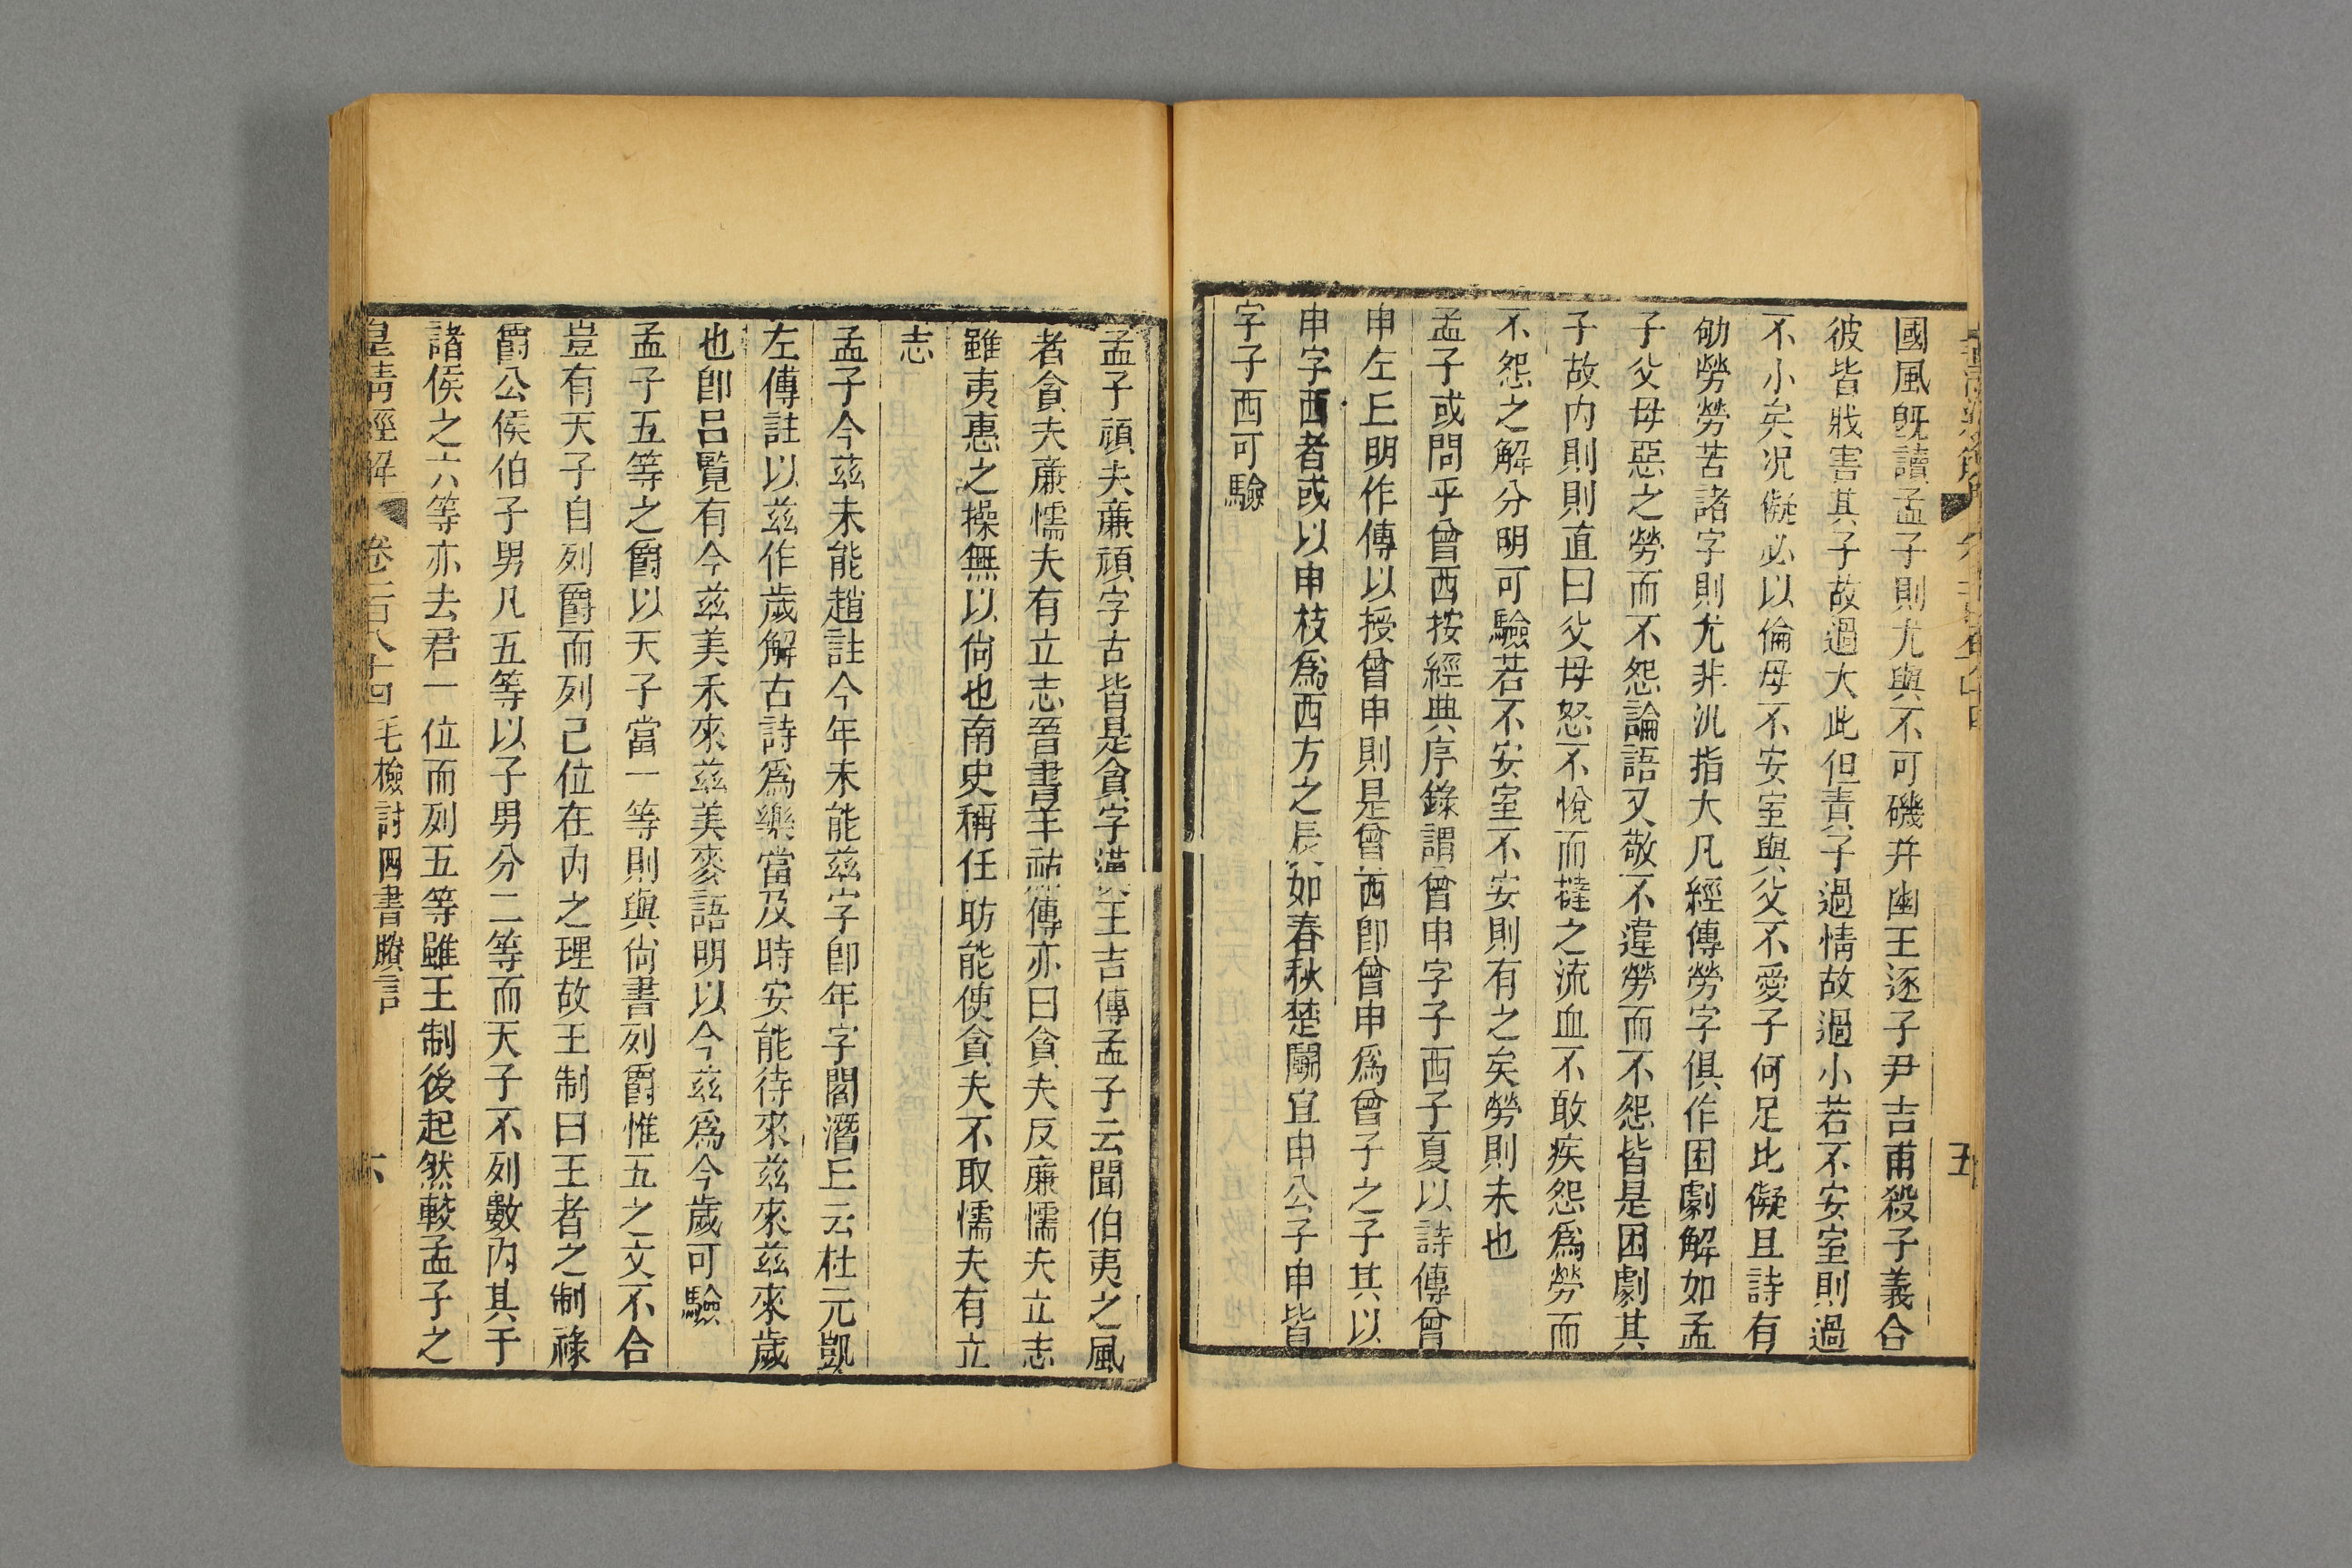 國風旣讀孟子則尤與不可磯幷幽王逐子尹吉甫殺子義合
彼皆戕害其子故過大此但責子過情故過小若不安室則過
不小矣況儗必以倫母不安室與父不愛子何足比儗且詩有
劬勞勞苦諸字則尤非汎指大凡經傳勞字俱作困劇解如孟
子父母惡之勞而不怨論語又敬不違勞而不怨皆是困劇其
子故内則則直曰父母怒不悅而撻之流血不敢疾怨爲勞而
不怨之解分明可驗若不安室不安則有之矣勞則未也
孟子或問乎曾西按經典序錄謂曾申字子西子夏以詩傳曾
申左丘明作傳以授曾申則是曾西卽曾申爲曾子之子其以
申字西者或以申枝爲西方之辰如春秋楚鬬宜申公子申皆
字子西可驗
五
孟子頑夫廉頑字古皆是貪字漢王吉傳孟子云聞伯夷之風
者貪夫廉懦夫有立志晉書羊祜傳亦曰貪夫反廉懦夫立志
雖夷惠之操無以尙也南史稱任昉能使貪夫不取懦夫有立
志
孟子今茲未能趙註今年未能茲字卽年字閻潛丘云杜元凱
左傳註以茲作歲解古詩爲樂當及時安能待來茲來茲來歲
也卽呂覽有今茲美禾來茲美麥語明以今茲爲今歲可驗
孟子五等之爵以天子當一等則與尙書列爵惟五之文不合
豈有天子自列爵而列己位在内之理故王制曰王者之制祿
爵公侯伯子男凡五等以子男分二等而天子不列數内其于
諸侯之六等亦去君一位而列五等雖王制後起然較孟子之
皇清經解 卷一百八十四 毛檢討四書賸言 六